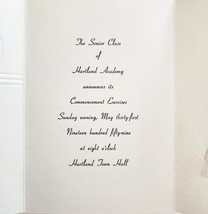 The Senior Class
of
Hartland Academy
announces its
Commencement Exercises
Sunday evening, May thirty-first
Nineteen hundred fifty-nine
at eight o'clock
Hartland Town Hall